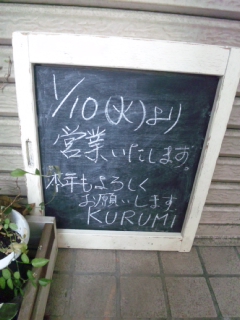 1/10(火)より
営業、いたします。
本年もよろしく
お願いします
KURUMI